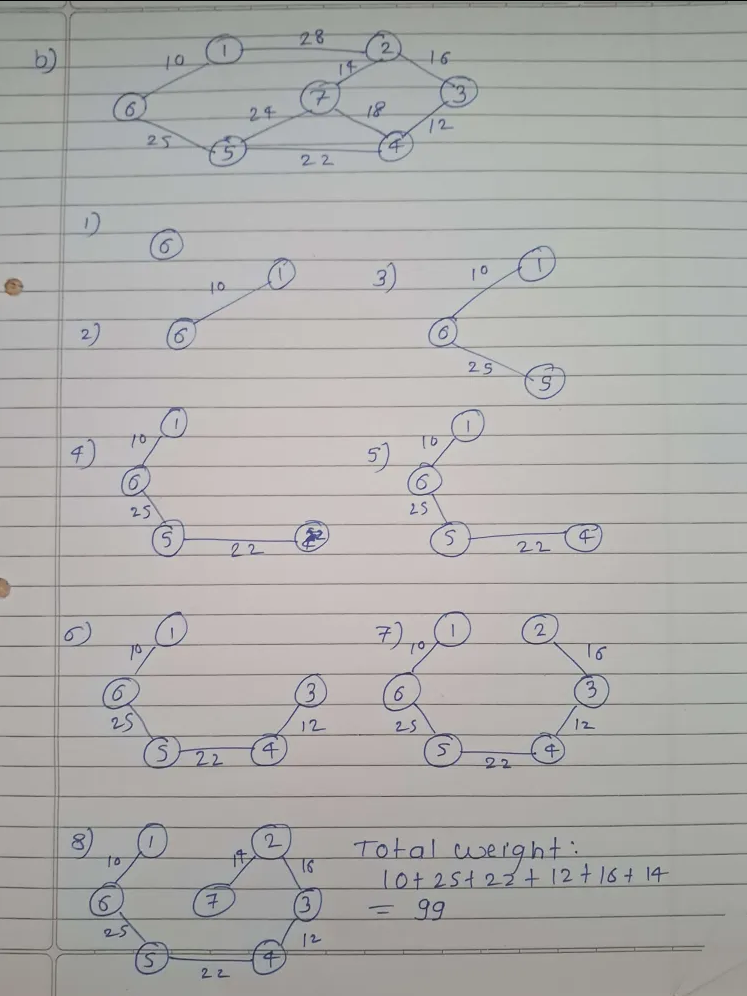 b)
1 28 2
10 14 16
6 7 3
24 18
25 12
5 22 4
1)
6
10 1
2) 6
3) 10 1
6
25
5
4) 1
10
6
25
5 22
5) 1
10
6
25
5 22 4
6) 1
10
6 3
25 12
5 22 4
7) 1 2
10 16
6 3
25 12
5 22 4
8) 1 2
10 14 16
6 7 3
25 12
5 22 4
Total weight:
10+25+22+12+16+14
= 99